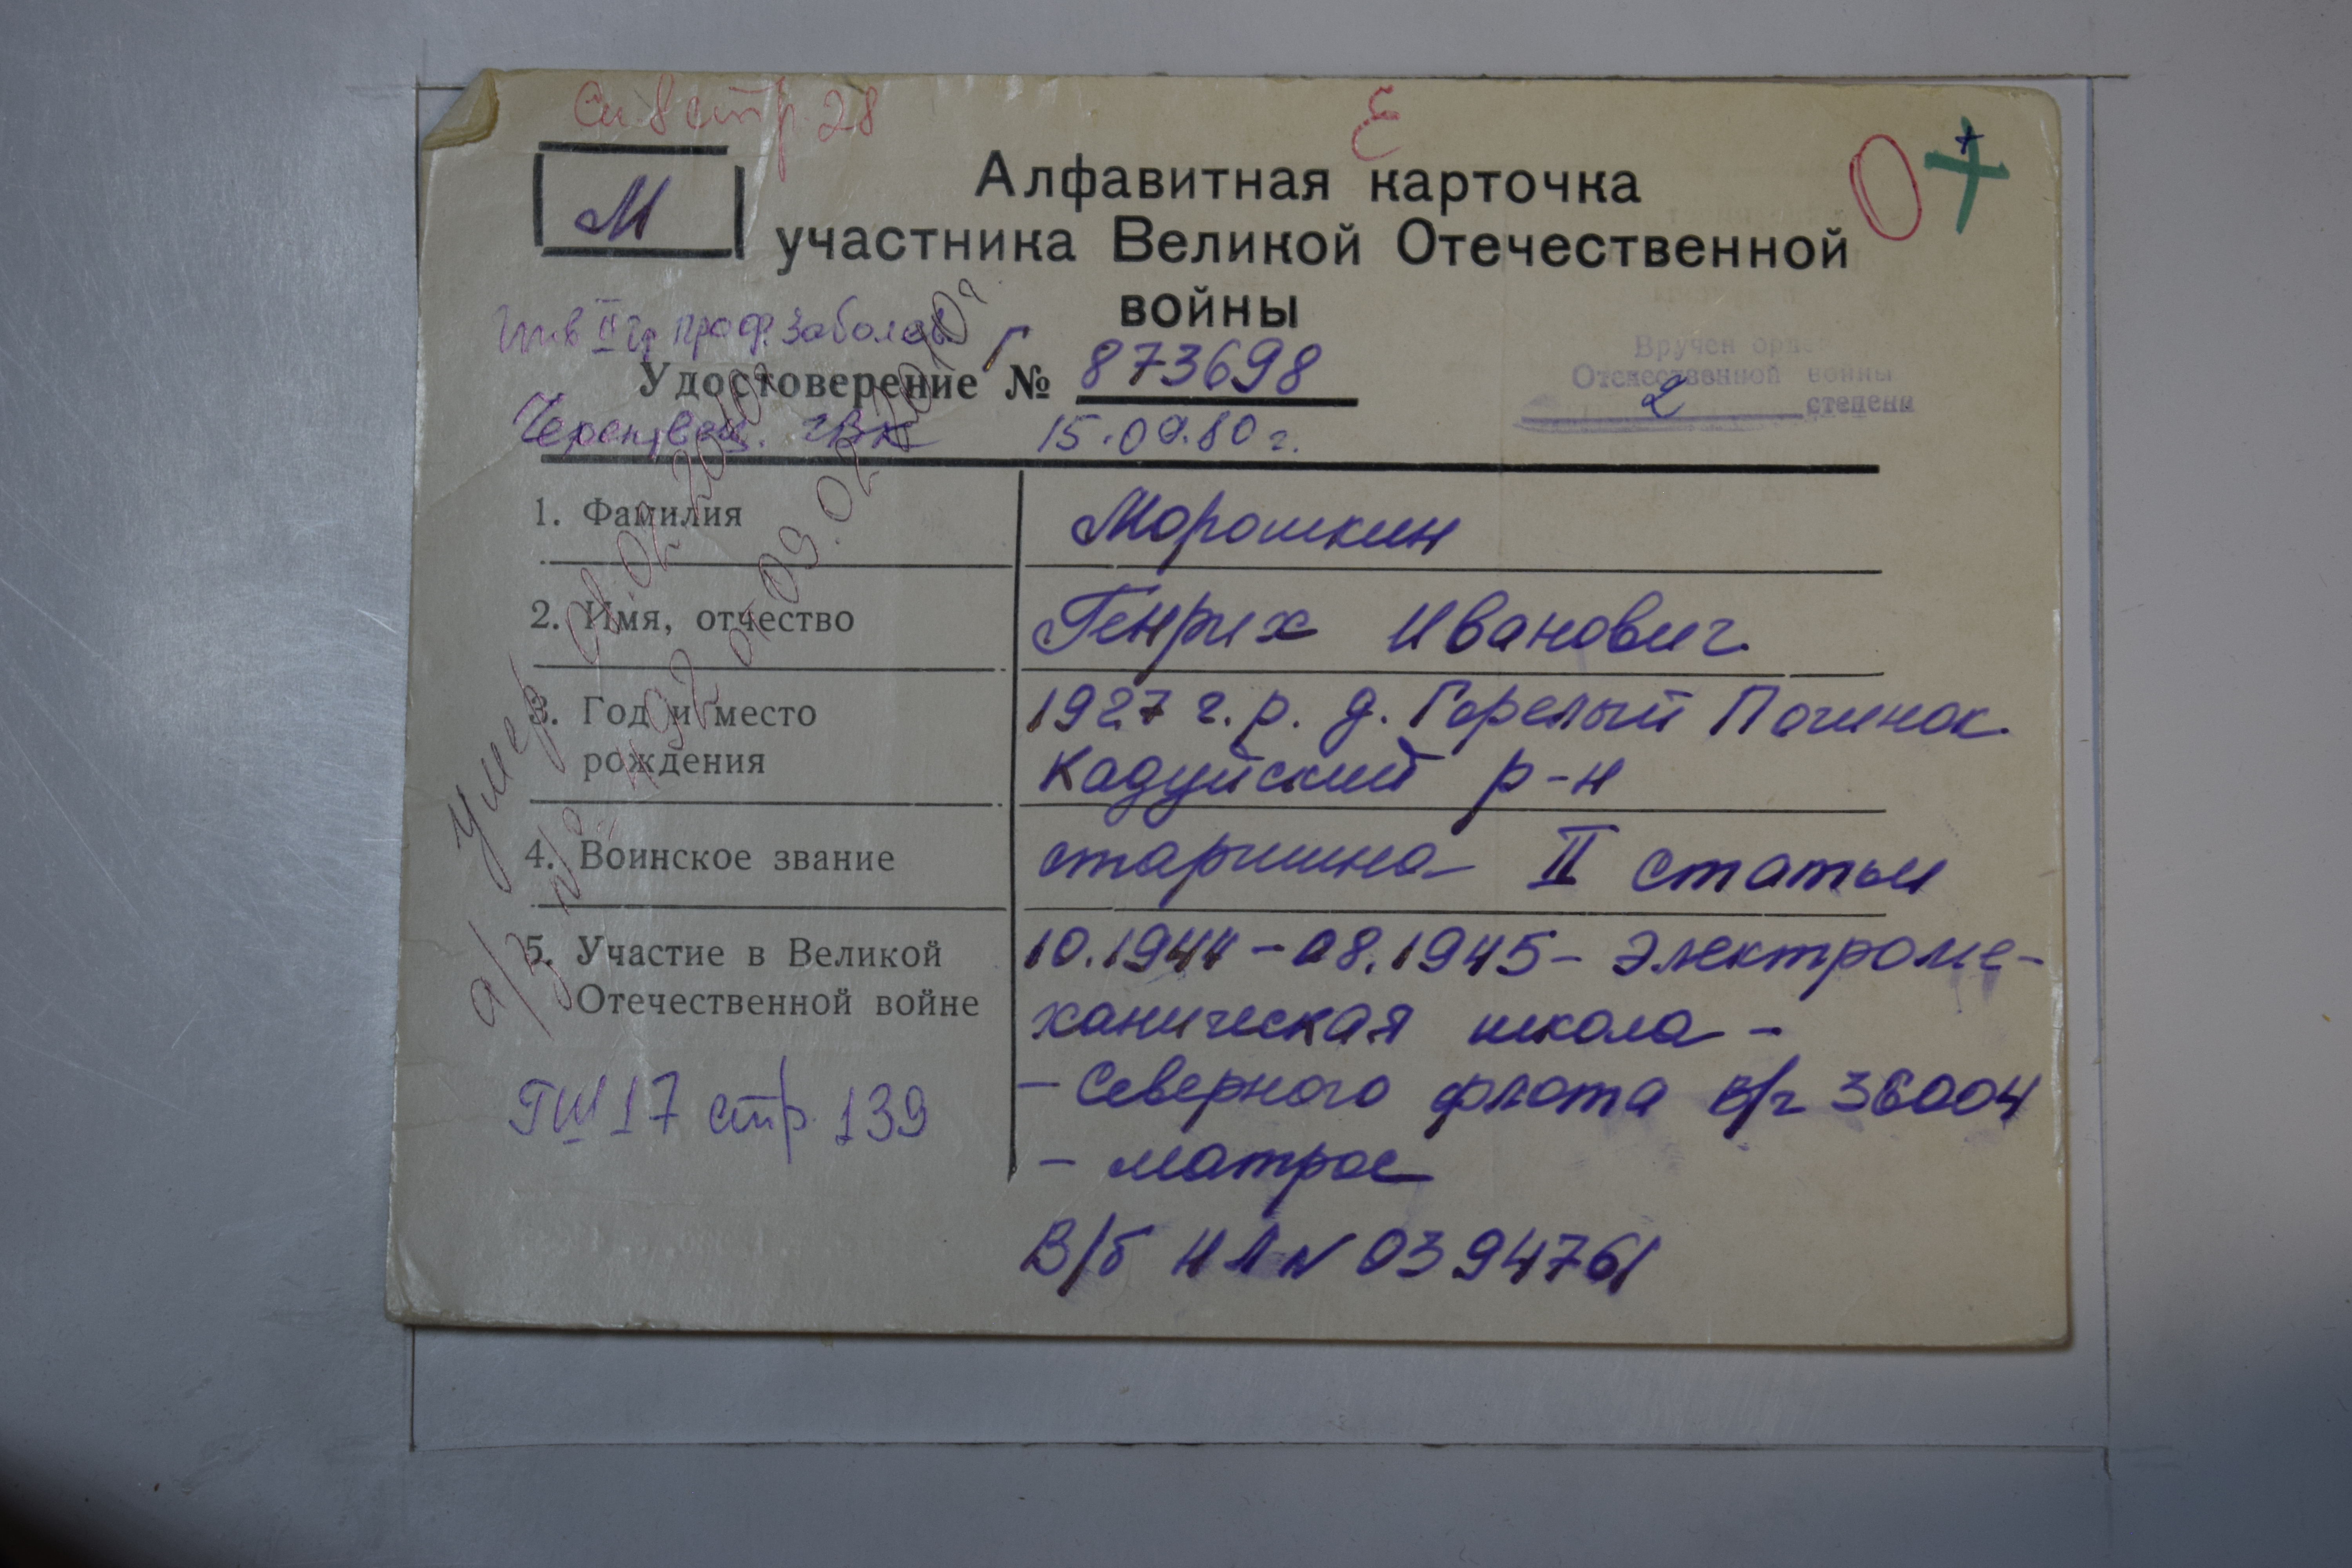 Сп 8 стр 28
Е
М
О
Алфавитная карточка
участника Великой Отечественной
войны
Инв II гр проф. заболев.
Удостоверение № 873698
Череповец. ГВК 15.09.80 г.
Вручен орде
Отечественной войны
2 степени
1. Фамилия
Морошкин
2. Имя, отчество
Генрих Иванович
3. Год и место
рождения
1927 г. р. д. Горелый Починок
Кадуйский р-н
4. Воинское звание
старшина II статьи
5. Участие в Великой
Отечественной войне
10.1944 - 08.1945 - Электроме-
ханическая школа -
- Северного флота в/ч 36004
- матрос
В/б НЛ № 0394761
ГШ 17 стр. 139
Умер 02 2010г
а/з № 492 от 09.02.2010г